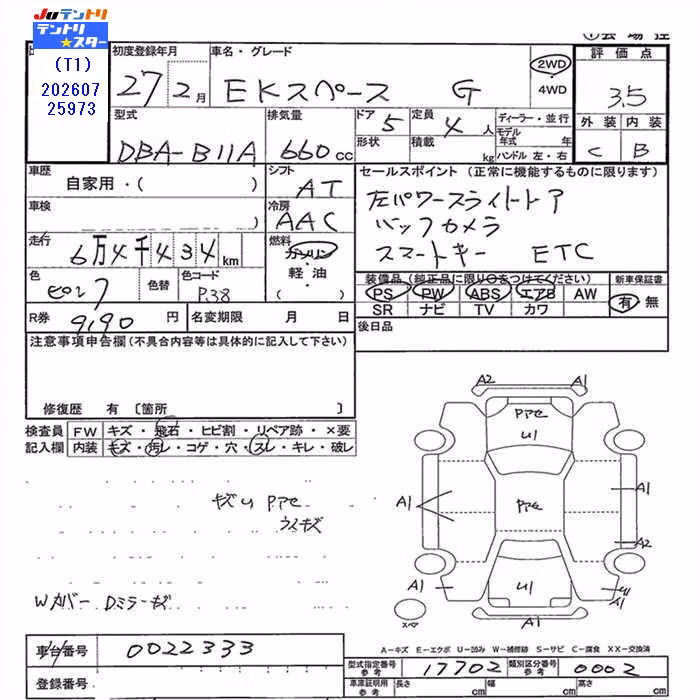 JUテントリ
テントリ
★スター
(T1)
202607
25973
初度登録年月
27 2月
車名・グレード
EKスペース G
2WD
4WD
評価点
3.5
外装 内装
C B
型式
DBA-B11A
排気量
660 cc
ドア 5
形状
定員 4 人
積載 kg
ディーラー・並行
モデル年式 年
ハンドル 左・右
車歴
自家用・( )
シフト
AT
セールスポイント (正常に機能するものに限ります)
左パワースライドドア
バックカメラ
スマートキー ETC
車検
冷房
AAC
走行
6万4千434km
燃料
ガソリン
軽・油
( )
色
色替
色コード
P38
装備品(純正品に限り○をつけてください)
PS PW ABS エアB AW
SR ナビ TV カワ
新車保証書
有 無
R券
9,190 円
名変期限 月 日
後日品
注意事項申告欄(不具合内容等は具体的に記入して下さい)
修復歴 有 〔箇所 〕
検査員
記入欄
FW キズ・飛石・ヒビ割・リペア跡・×要
内装 キズ・汚レ・コゲ・穴・スレ・キレ・破レ
キズU Pアセ
ウスキズ
Wカバー Dミラーキズ
A2 A1
Pアセ
U1
A1 Pアセ A1
A2
A1 U1 U1 A1
A1
スペア
A-キズ E-エクボ U-凹み W-補修跡 S-サビ C-腐食 XX-交換済
車台番号
0022333
登録番号
型式指定番号 参考
17702
類別区分番号 参考
0002
車庫証明用 参考
長さ cm 幅 cm 高さ cm